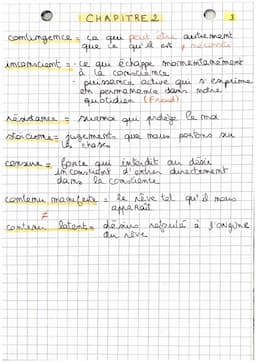 CHAPITRE 2
3
contingence = ce qui peut être autrement
que ce qu'il est ≠ nécessité
inconscient = ce qui échappe momentanément
à la conscience
puissance active qui s'exprime
en permanence dans notre
quotidien (Freud)
résistance = surmoi qui protège le moi
stoïcisme = jugements que nous portons sur
la chose
censure = force qui interdit au désir
inconscient d'entrer directement
dans la conscience
contenu manifeste = le rêve tel qu'il nous
apparaît
≠
contenu latent = désirs refoulé à l'origine
du rêve